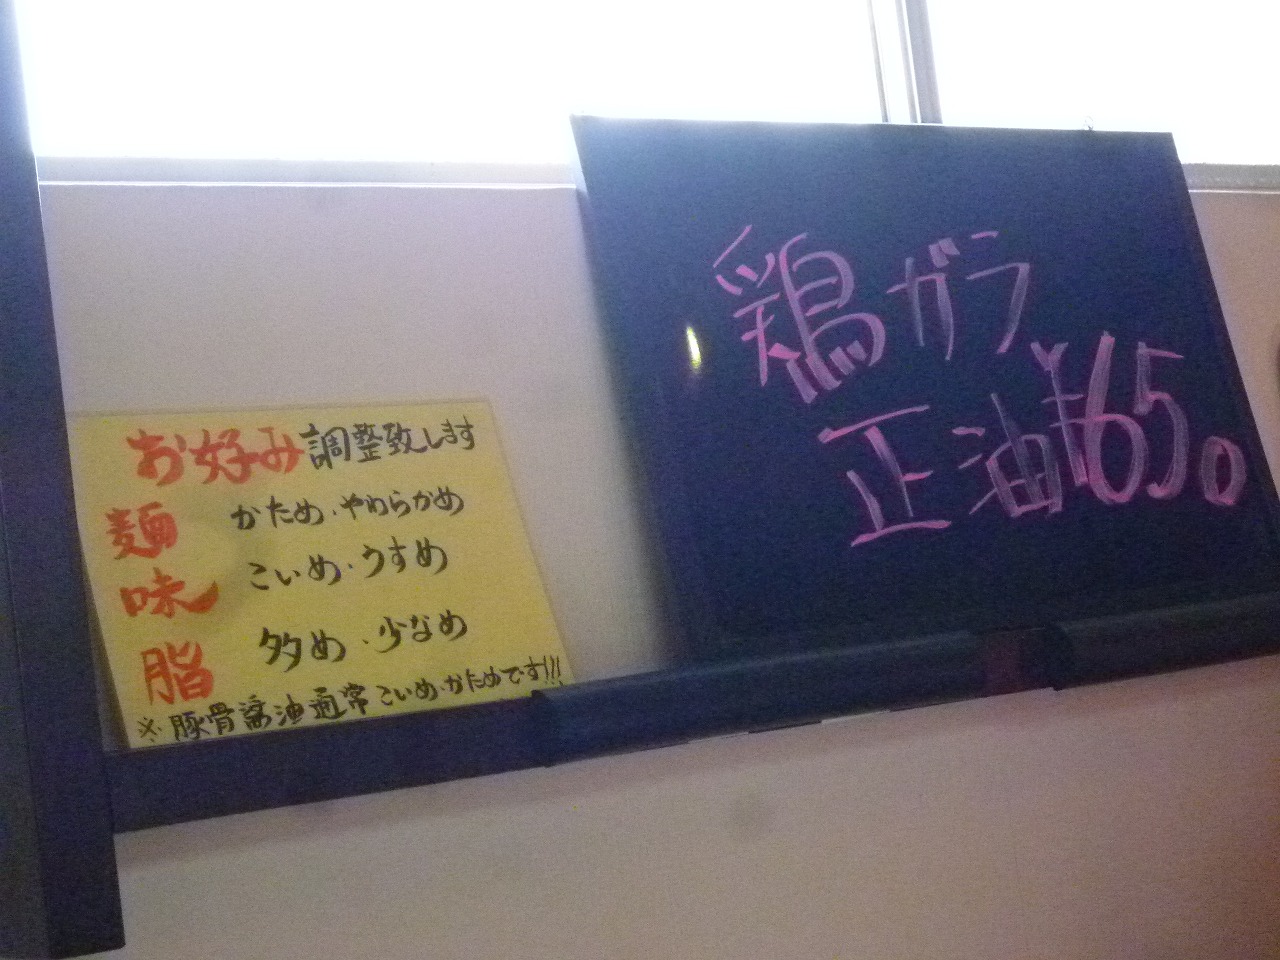 お好み調整致します
麺 かため・やわらかめ
味 こいめ・うすめ
脂 多め・少なめ
※豚骨醤油通常こいめ・かためです!!!
鶏ガラ
正油¥650